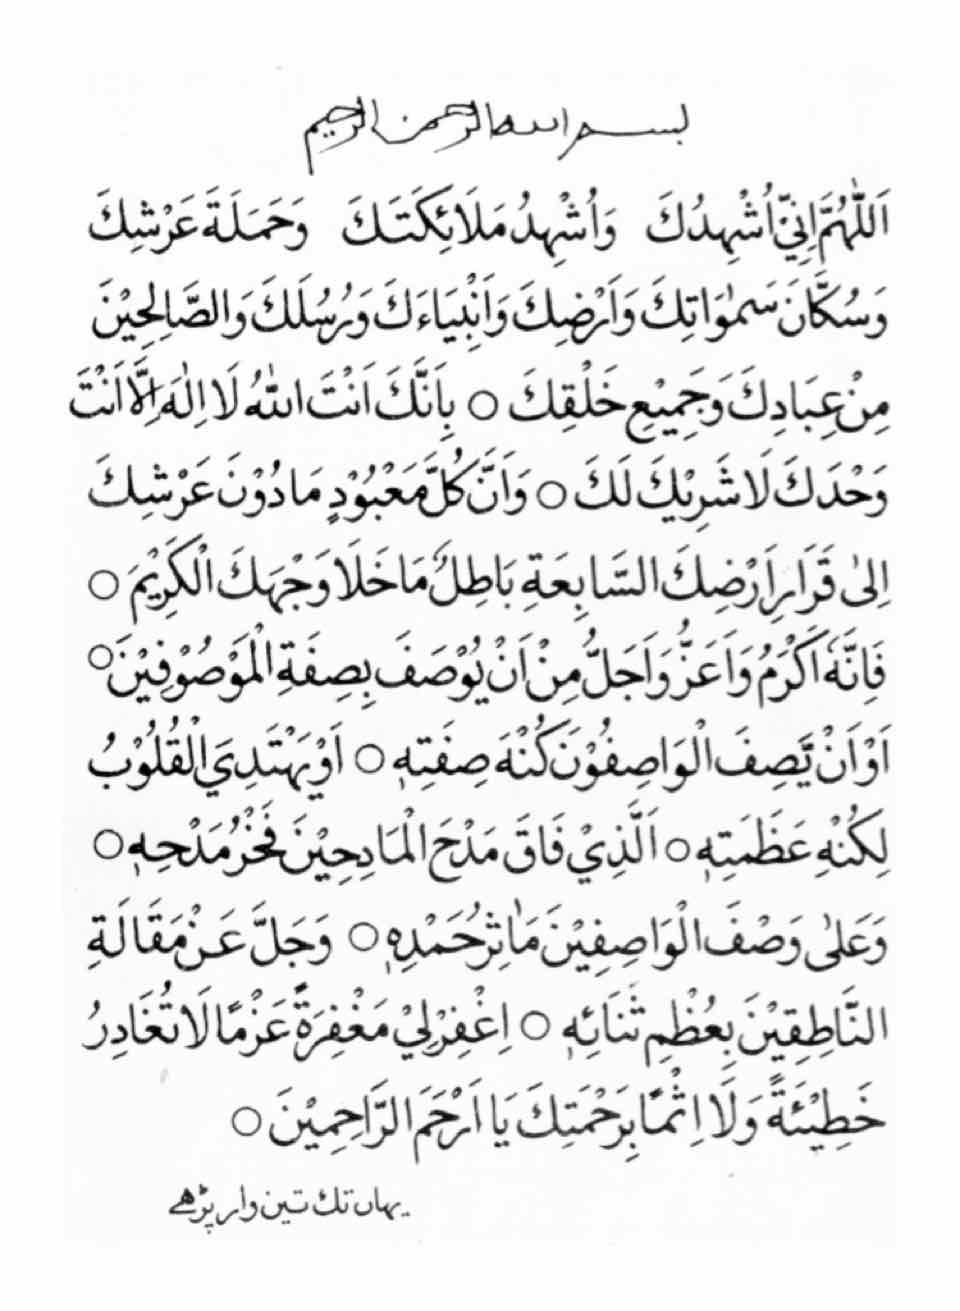 بسم الله الرحمن الرحيم
اَللّٰهُمَّ اِنِّيْ اُشْهِدُكَ وَاُشْهِدُ مَلَائِكَتَكَ وَحَمَلَةَ عَرْشِكَ
وَسُكَّانَ سَمٰوَاتِكَ وَاَرْضِكَ وَاَنْبِيَاءَكَ وَرُسُلَكَ وَالصَّالِحِيْنَ
مِنْ عِبَادِكَ وَجَمِيْعِ خَلْقِكَ ○ بِاَنَّكَ اَنْتَ اللهُ لَا اِلٰهَ اِلَّا اَنْتَ
وَحْدَكَ لَا شَرِيْكَ لَكَ ○ وَاَنَّ كُلَّ مَعْبُوْدٍ مَا دُوْنَ عَرْشِكَ
اِلٰى قَرَارِ اَرْضِكَ السَّابِعَةِ بَاطِلٌ مَا خَلَا وَجْهَكَ الْكَرِيْمَ ○
فَاِنَّهٗ اَكْرَمُ وَاَعَزُّ وَاَجَلُّ مِنْ اَنْ يُوْصَفَ بِصِفَةِ الْمَوْصُوْفِيْنَ ○
اَوْ اَنْ يَّصِفَ الْوَاصِفُوْنَ كُنْهَ صِفَتِهٖ ○ اَوْ يَهْتَدِيَ الْقُلُوْبُ
لِكُنْهِ عَظَمَتِهٖ ○ اَلَّذِيْ فَاقَ مَدْحَ الْمَادِحِيْنَ فَخْرُ مَدْحِهٖ ○
وَعَلٰى وَصْفَ الْوَاصِفِيْنَ مَاٰثِرُ حَمْدِهٖ ○ وَجَلَّ عَنْ مَقَالَةِ
النَّاطِقِيْنَ بِعُظْمِ ثَنَائِهٖ ○ اِغْفِرْلِيْ مَغْفِرَةً عَزْمًا لَا تُغَادِرُ
خَطِيْئَةً وَلَا اِثْمًا بِرَحْمَتِكَ يَا اَرْحَمَ الرَّاحِمِيْنَ ○
يہاں تك تين وار پڑھے